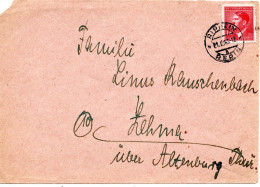 Familie
Linus Rauschenbach
Lehma
über Altenburg Thür.